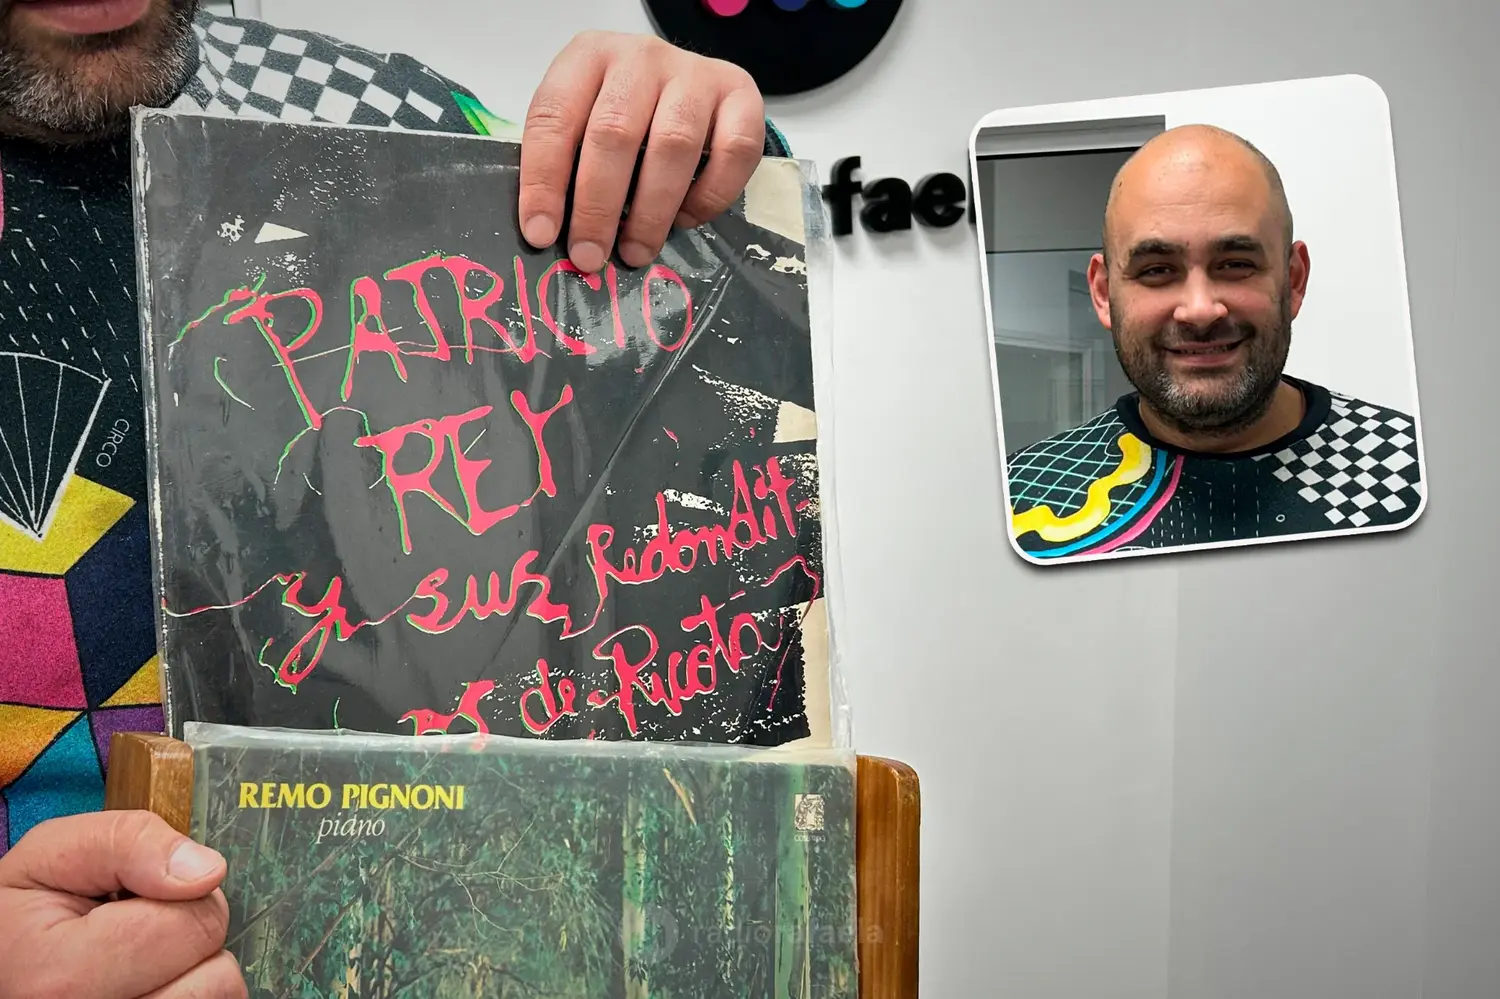 PATRICIO
REY
y sus Redondit-
os de Ricota
REMO PIGNONI
piano
CIRCO
fae
radiorafaela